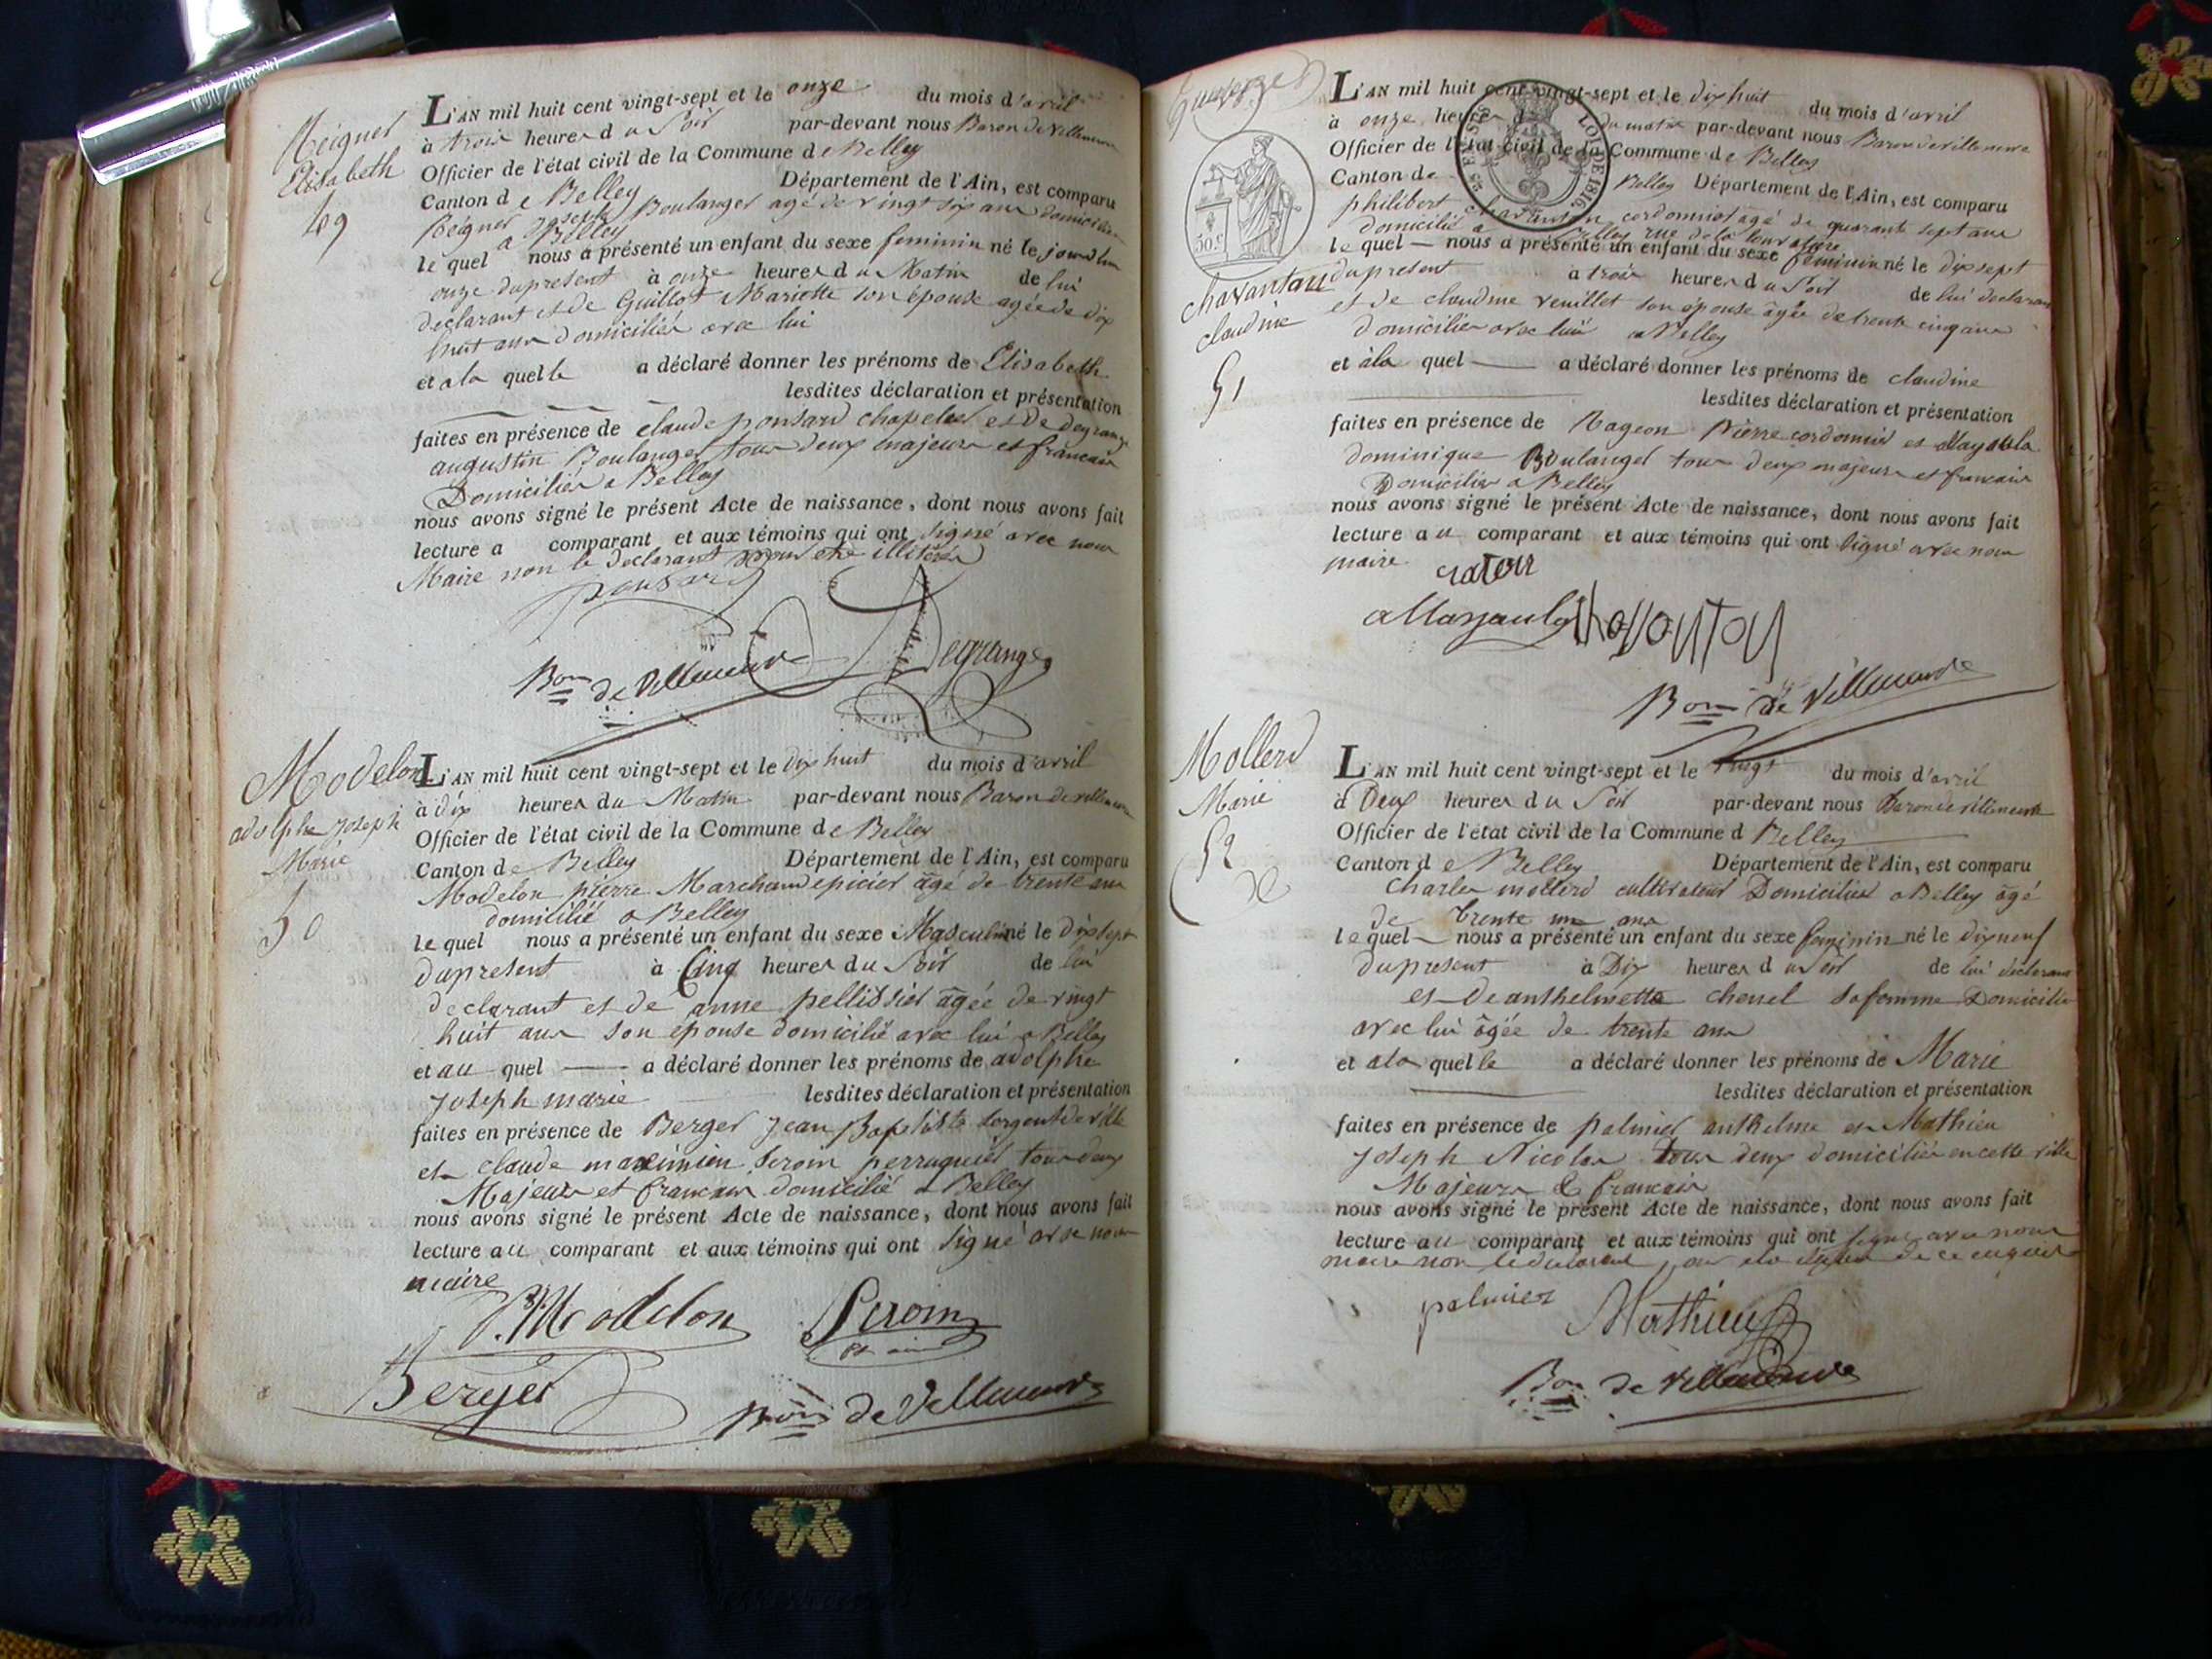 Elisabeth
49
L'AN mil huit cent vingt-sept et le onze du mois d'avril
à trois heures du Soir par-devant nous Baron de Villeneuve
Officier de l'état civil de la Commune de Belley
Canton de Belley Département de l'Ain, est comparu
Joseph Boulanger agé de vingt six ans domicilié
a Belley
le quel nous a présenté un enfant du sexe feminin né le
onze dupresent à onze heures du Matin de lui
declarant et de Guillot Mariette son épouse agée de dix
huit ans domiciliée avec lui
et a la quelle a déclaré donner les prénoms de Elisabeth
lesdites déclaration et présentation
faites en présence de claude ponsard chapelier et de degrange
augustin Boulanger tous deux majeurs et francais
Domiciliés a Belley
nous avons signé le présent Acte de naissance, dont nous avons fait
lecture a comparant et aux témoins qui ont signé avec nous
Maire non le declarant pour etre
ponsard
Degrange
Bon de Villeneuve
Modelon
adolphe joseph
Marie
50
L'AN mil huit cent vingt-sept et le dix huit du mois d'avril
à dix heures du Matin par-devant nous Baron de villeneuve
Officier de l'état civil de la Commune de Belley
Canton de Belley Département de l'Ain, est comparu
Modelon pierre Marchand epicier âgé de trente ans
domicilié a Belley
le quel nous a présenté un enfant du sexe Masculin né le dix sept
dupresent à Cinq heures du Soir de lui
declarant et de anne pellissier âgée de vingt
huit ans son épouse domicilié avec lui a Belley
et au quel a déclaré donner les prénoms de adolphe
joseph marie lesdites déclaration et présentation
faites en présence de Berger jean Baptiste sergent de ville
et claude maximien peroin perruquier tous deux
Majeurs et francais domicilié a Belley
nous avons signé le présent Acte de naissance, dont nous avons fait
lecture au comparant et aux témoins qui ont signé avec nous
maire
P. Modelon
Peroin
Berger
Bon de Villeneuve
50 c
chavantau
claudine
51
L'AN mil huit cent vingt-sept et le dix huit du mois d'avril
à onze heures du matin par-devant nous Baron de villeneuve
Officier de l'état civil de la Commune de Belley
Canton de Belley Département de l'Ain, est comparu
philibert cordonnier âgé de quarante sept ans
domicilié a Belley rue de la
le quel nous a présenté un enfant du sexe feminin né le dix sept
dupresent à trois heures du Soir de lui declarant
et de claudine venillet son épouse âgée de trente cinq ans
domiciliés avec lui a Belley
et à la quel a déclaré donner les prénoms de claudine
lesdites déclaration et présentation
faites en présence de Rageon Pierre cordonnier et
dominique Boulanger tous deux majeurs et francais
Domicilies a Belley
nous avons signé le présent Acte de naissance, dont nous avons fait
lecture au comparant et aux témoins qui ont signé avec nous
maire
Bon de Villeneuve
Mollerd
Marie
52
L'AN mil huit cent vingt-sept et le vingt du mois d'avril
à Deux heures du Soir par-devant nous Baron de villeneuve
Officier de l'état civil de la Commune d Belley
Canton de Belley Département de l'Ain, est comparu
Charles mollerd cultivateur Domicilié a Belley âgé
de trente un ans
le quel nous a présenté un enfant du sexe feminin né le dix neuf
du present à Dix heures du Soir de lui declarant
et de anthelmette chenel sa femme Domicilié
avec lui âgée de trente ans
et a la quelle a déclaré donner les prénoms de Marie
lesdites déclaration et présentation
faites en présence de palmier anthelme et Mathieu
joseph Nicolas tous deux domiciliés en cette ville
Majeurs & francais
nous avons signé le présent Acte de naissance, dont nous avons fait
lecture au comparant et aux témoins qui ont signé avec nous
maire non le declarant pour de ce enquis
palmier
Mathieu
Bon de Villeneuve